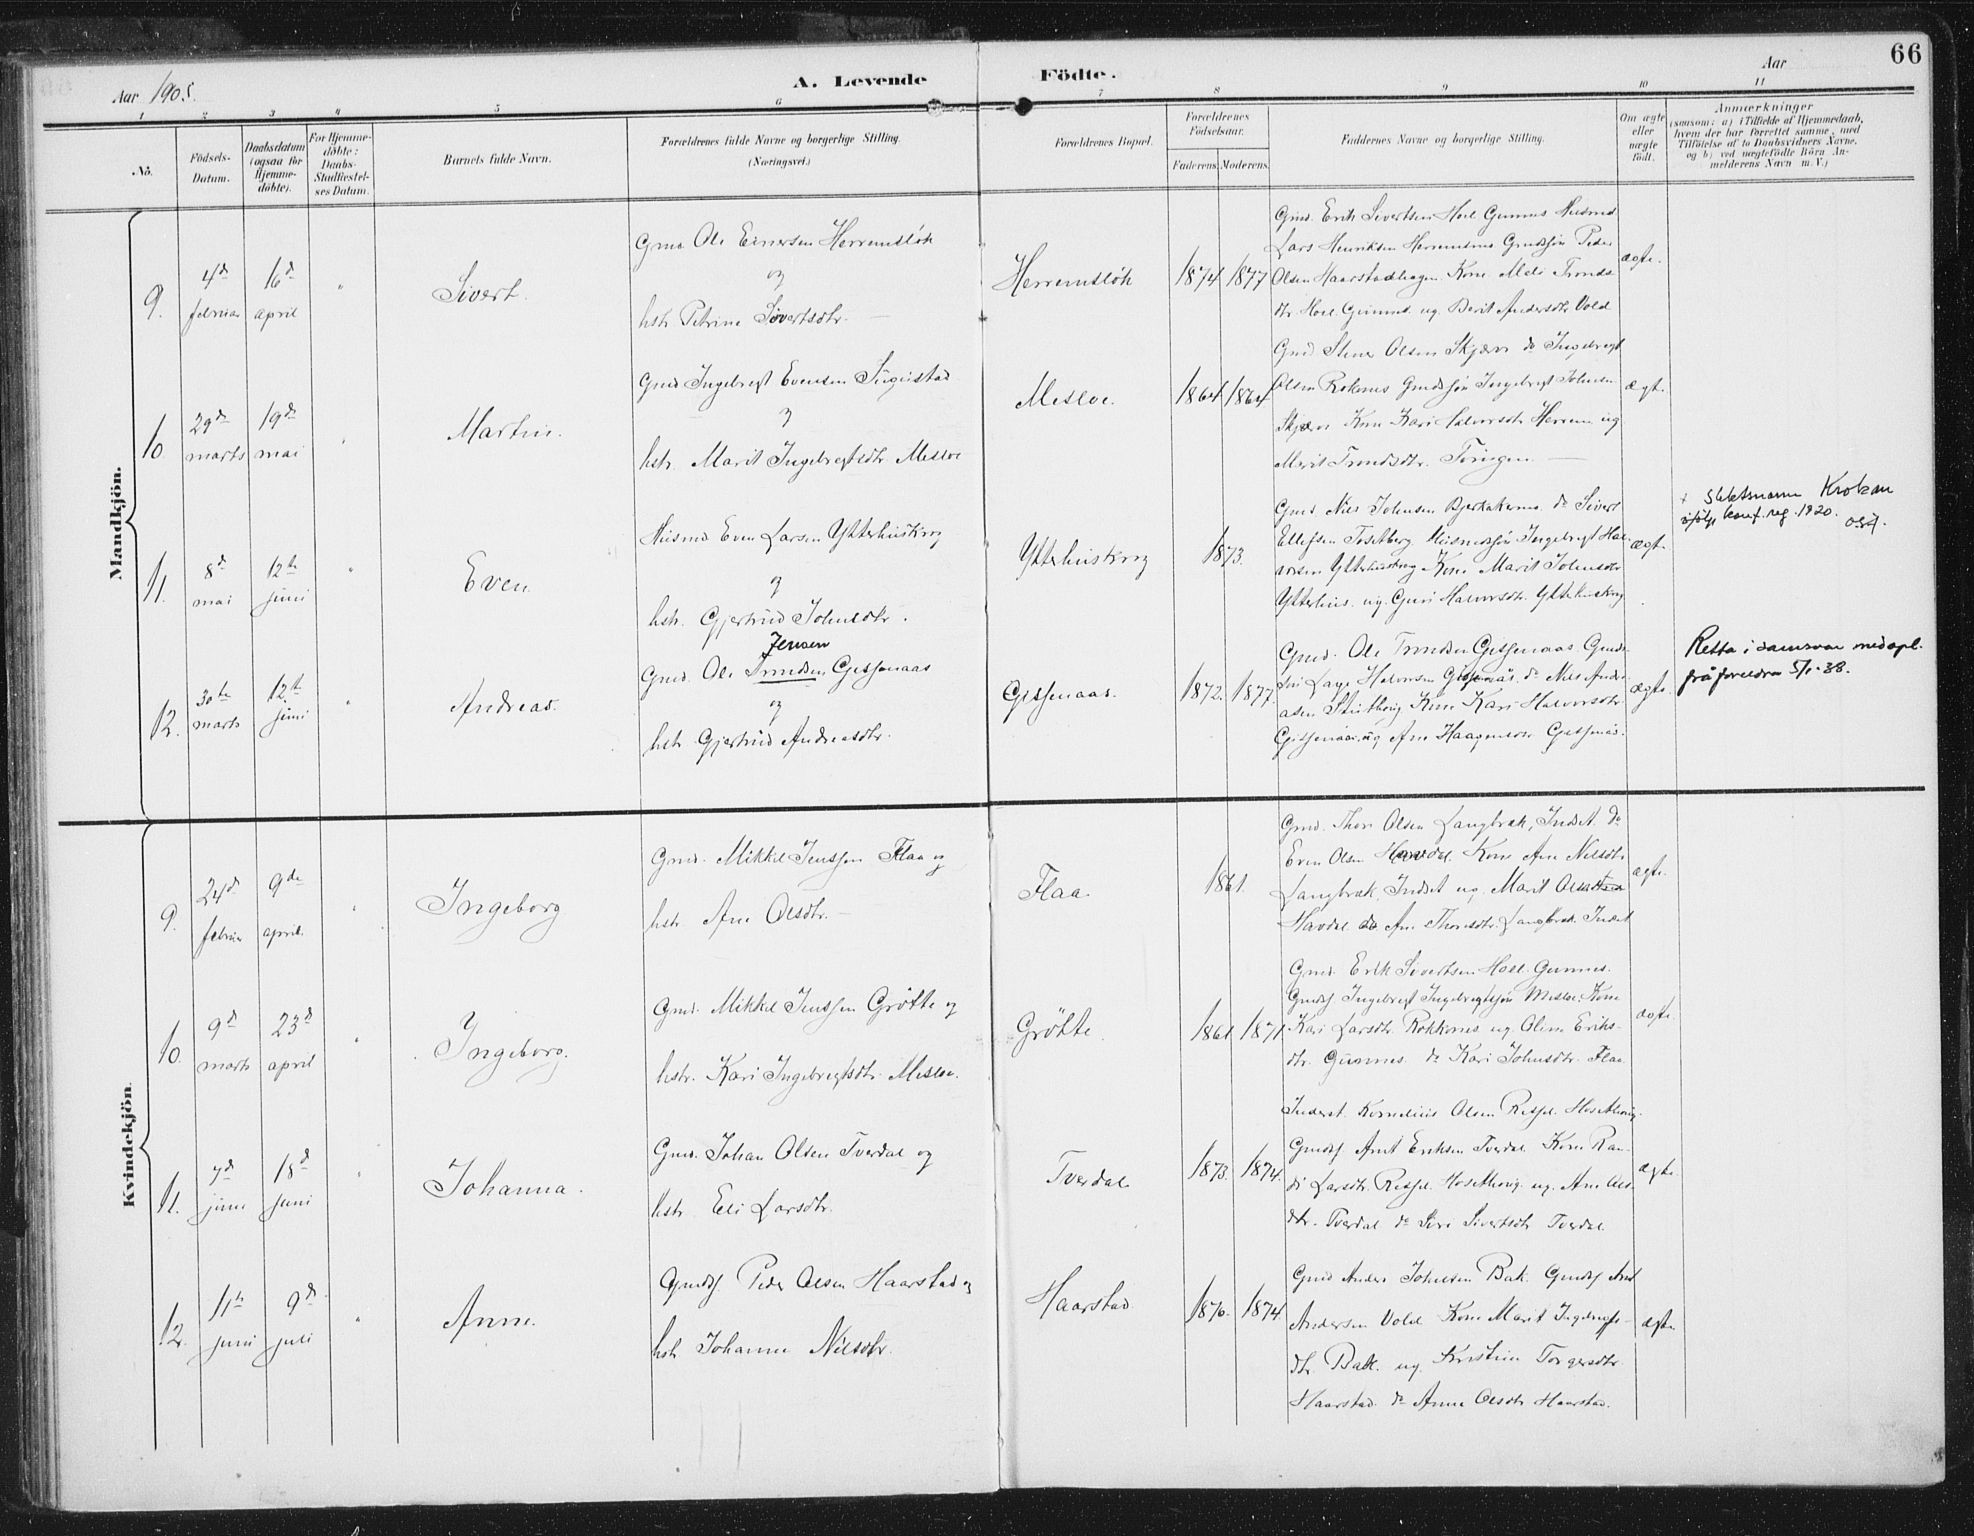 66
Aar 1905.
A. Levende Födte.
Aar
1 2 3 4 5 6 7 8 9 10 11
No.
Födsels-Datum.
Daabsdatum (ogsaa for Hjemme-döbte).
For Hjemme-döbte: Daabs-Stadfæstel-ses Datum.
Barnets fulde Navn.
Forældrenes fulde Navne og borgerlige Stilling. (Næringsvei.)
Forældrenes Bopæl.
Forældrenes Födselsaar.
Faderens. Moderens.
Faddernes Navne og borgerlige Stilling.
Om ægte eller uægte födt.
Anmærkninger
(saasom: a) i Tilfælde af Hjemmedaab,
hvem der har forrettet samme, med
Tilföielse af to Daabsvidners Navne,
og b) ved uægtefödte Börn An-
melderens Navn m. V.)
Mandkjön.
9. 4d februar 16d april " Sivert.
Gmd Ole Einersen Herremsløk
og
hstr. Petrine Sivertsdtr.
Herremsløk 1874 1877
Gmd. Erik Sivertsen Hoel Gunnes Husmd.
Lars Henriksen Herremsmo Gmdssøn Peder
Olsen Haarstadhagen Kone Meli Tronds
dtr. Hoel Gunnes ug. Berit Andersdtr Vold
ægte.
10. 29d marts 19d mai " Martin.
Gmd Ingebregt Evensen
og
hstr. Marit Ingebregtsdtr. Mesloe
Mesloe. 1864 1864
Gmd Stener Olsen Skjærv do Ingebregt
Olsen Roknes Gmdssøn Ingebregt Johnsen
Skjærv Kone Kari Halvorsdtr Herrem ug
Marit Trondsdtr.
ægte.
11. 8d mai 12te juni " Even.
Husmd Even Larsen Ytterhuskrog
og
hstr. Gjertrud Johnsdtr.
Ytterhuskrog 1873.
Gmd Nils Johnsen Bjerkaker do Sivert
Ellefsen Tosetberg Husmdssøn Ingebregt Hal-
vorsen Ytterhuskrog Kone Marit Johnsdtr
Ytterhus. ug. Guri Halvorsdtr. Ytterhuskrog
ægte
+ Slektsnamn Krokan
ifølge konf. reg. 1920.
12. 30te marts 12te juni " Andreas.
Jensen
Gmd. Ole Trondsen Gissenaas
og
hstr. Gjertrud Andreasdtr.
Gissenaas. 1872. 1877
Gmd. Ole Trondsen Gissenaas Gmds-
søn Lars Halvorsen Gissenaas. do Nils Andre-
asen Kone Kari Halvorsdtr.
Gissenaas, ug Ane Haagensdtr Gissenaas.
ægte
Retta i samsvar med opl.
frå foreldra 5/1-38.
Kvindekjön.
9. 24d februar 9de april. " Ingeborg
Gmd. Mikkel Jenssen Flaa og
hstr. Ane Olsdtr.
Flaa 1861.
Gmd. Thore Olsen Langbræk, Indset. do
Even Olsen Havdal. Kone Ane Nilsdtr.
Langbræk, Indset ug. Marit Olsdtr
Havdal do Ane Thoresdtr. Langbræk Indset
ægte.
10. 9d marts 23d april " Ingeborg.
Gmd. Mikkel Jenssen Grötte og
hstr. Kari Ingebregtsdtr. Mesloe.
Grötte. 1861 1871
Gmd. Erik Sivertsen Hoel. Gunnes.
Gmdss Ingebregt Ingebregtssøn Mesloe. Kone
Kari Larsdtr. Rokkones ug. Oline Eriks-
dtr. Gunnes. do Kari Johnsdtr. Flaa
ægte.
11. 7d juni 18d juni " Johanna.
Gmd. Johan Olsen Tverdal og
hstr. Eli Larsdtr.
Tverdal 1873. 1874.
Inderst. Kornelius Olsen
Gmdss. Arnt Eriksen Tverdal. Kone Ran-
di Larsdtr. ug. Ane Ols-
dtr. Tverdal do Siri Sivertsdtr Tverdal
ægte.
12. 11te juni 9d juli " Anne.
Gmdss. Peder Olsen Haarstad og
hstr Johanne Nilsdtr.
Haarstad. 1870. 1874.
Gmd Anders Johnsen Bak. Gmdss Arnt
Andersen Vold Kone Marit Ingebregts-
dtr. Bak. ug. Kristine Torgersdtr.
Haarstad do Anne Olsdtr Haarstad.
ægte.